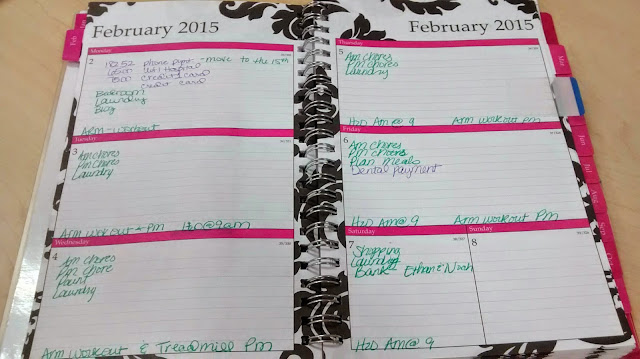 February 2015
Monday
2
182.52 phone pymt - move to the 15th
Hospital
credit card
credit card
Bedroom
Laundry
Blog
Arm - workout
Tuesday
3
Am chores
Pm chores
Laundry
Arm workout Pm H2O @ 9am
Wednesday
4
Am chores
Pm chore
Laundry
Arm workout & Treadmill Pm
February 2015
Thursday
5
Am chores
Pm chores
Laundry
H2O Am @ 9 Arm workout Pm
Friday
6
Am chores
Pm chores
Plan Meals
Dental payment
H2O Am @ 9 Arm workout Pm
Saturday
7
Shopping
Laundry
Bank Ethan & Noah
H2O Am @ 9
Sunday
8
Feb
Mar
Jun
Jul
Aug